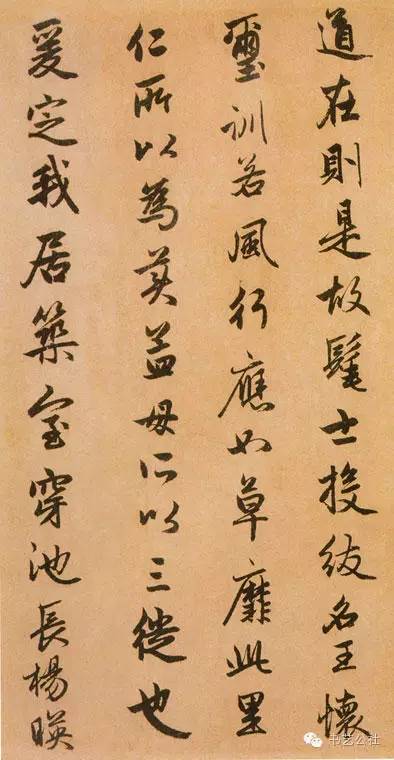 道在則是故髦士投紱名王懷
璽訓若風行應如草靡此里
仁所以為美孟母所以三徙也
爰定我居築室穿池長楊暎
书艺公社